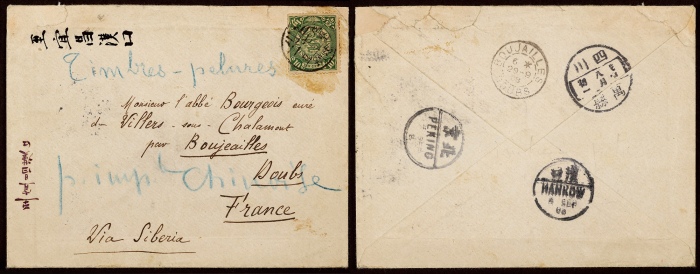 至宜昌漢口
Timbres-pelures
Monsieur l'abbé Bourgeois curé
de Villers-sous-Chalamont
par Boujeailles
Doubs
p. imple Chinoise
France
Via Siberia
BOUJAILLES
DOUBS
四川
萬縣
北京
PEKING
漢口
HANKOW
8 SEP